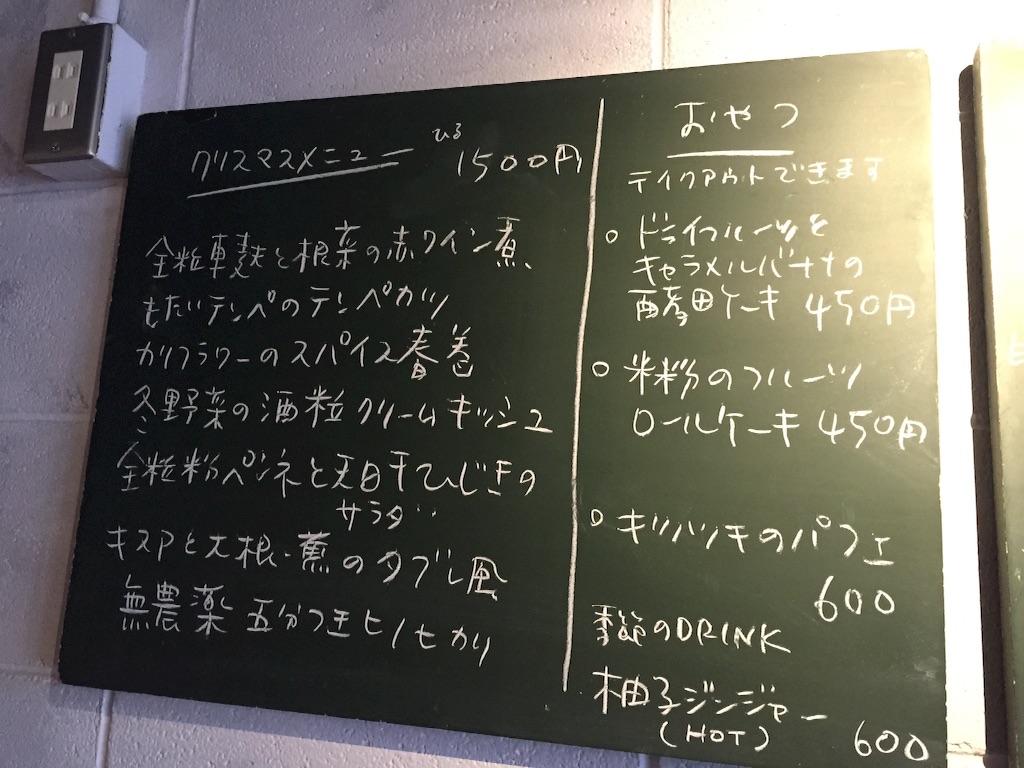 クリスマスメニュー ひる 1500円
全粒車麩と根菜の赤ワイン煮、
もだいテンペのテンペカツ
カリフラワーのスパイス春巻
冬野菜の酒粒クリームキッシュ
全粒粉ペンネと天日干ひじきの
サラダ
キヌアと大根・蕪のタブレ風
無農薬 五分つき ヒノヒカリ
おやつ
テイクアウトできます
○ ドライフルーツと
キャラメルバナナの
酵母ケーキ 450円
○ 米粉のフルーツ
ロールケーキ 450円
○ キツツキのパフェ
600
季節のDRINK
柚子ジンジャー
(HOT) 600